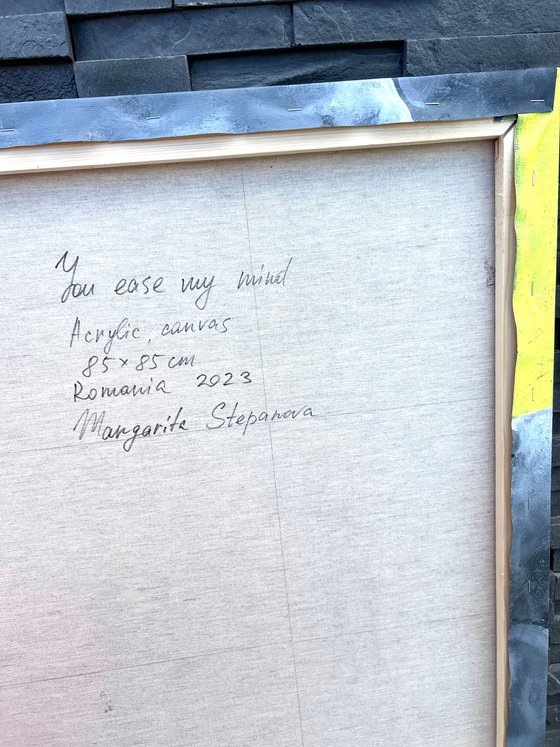 You ease my mind
Acrylic, canvas
85×85 cm
Romania 2023
Margarita Stepanova